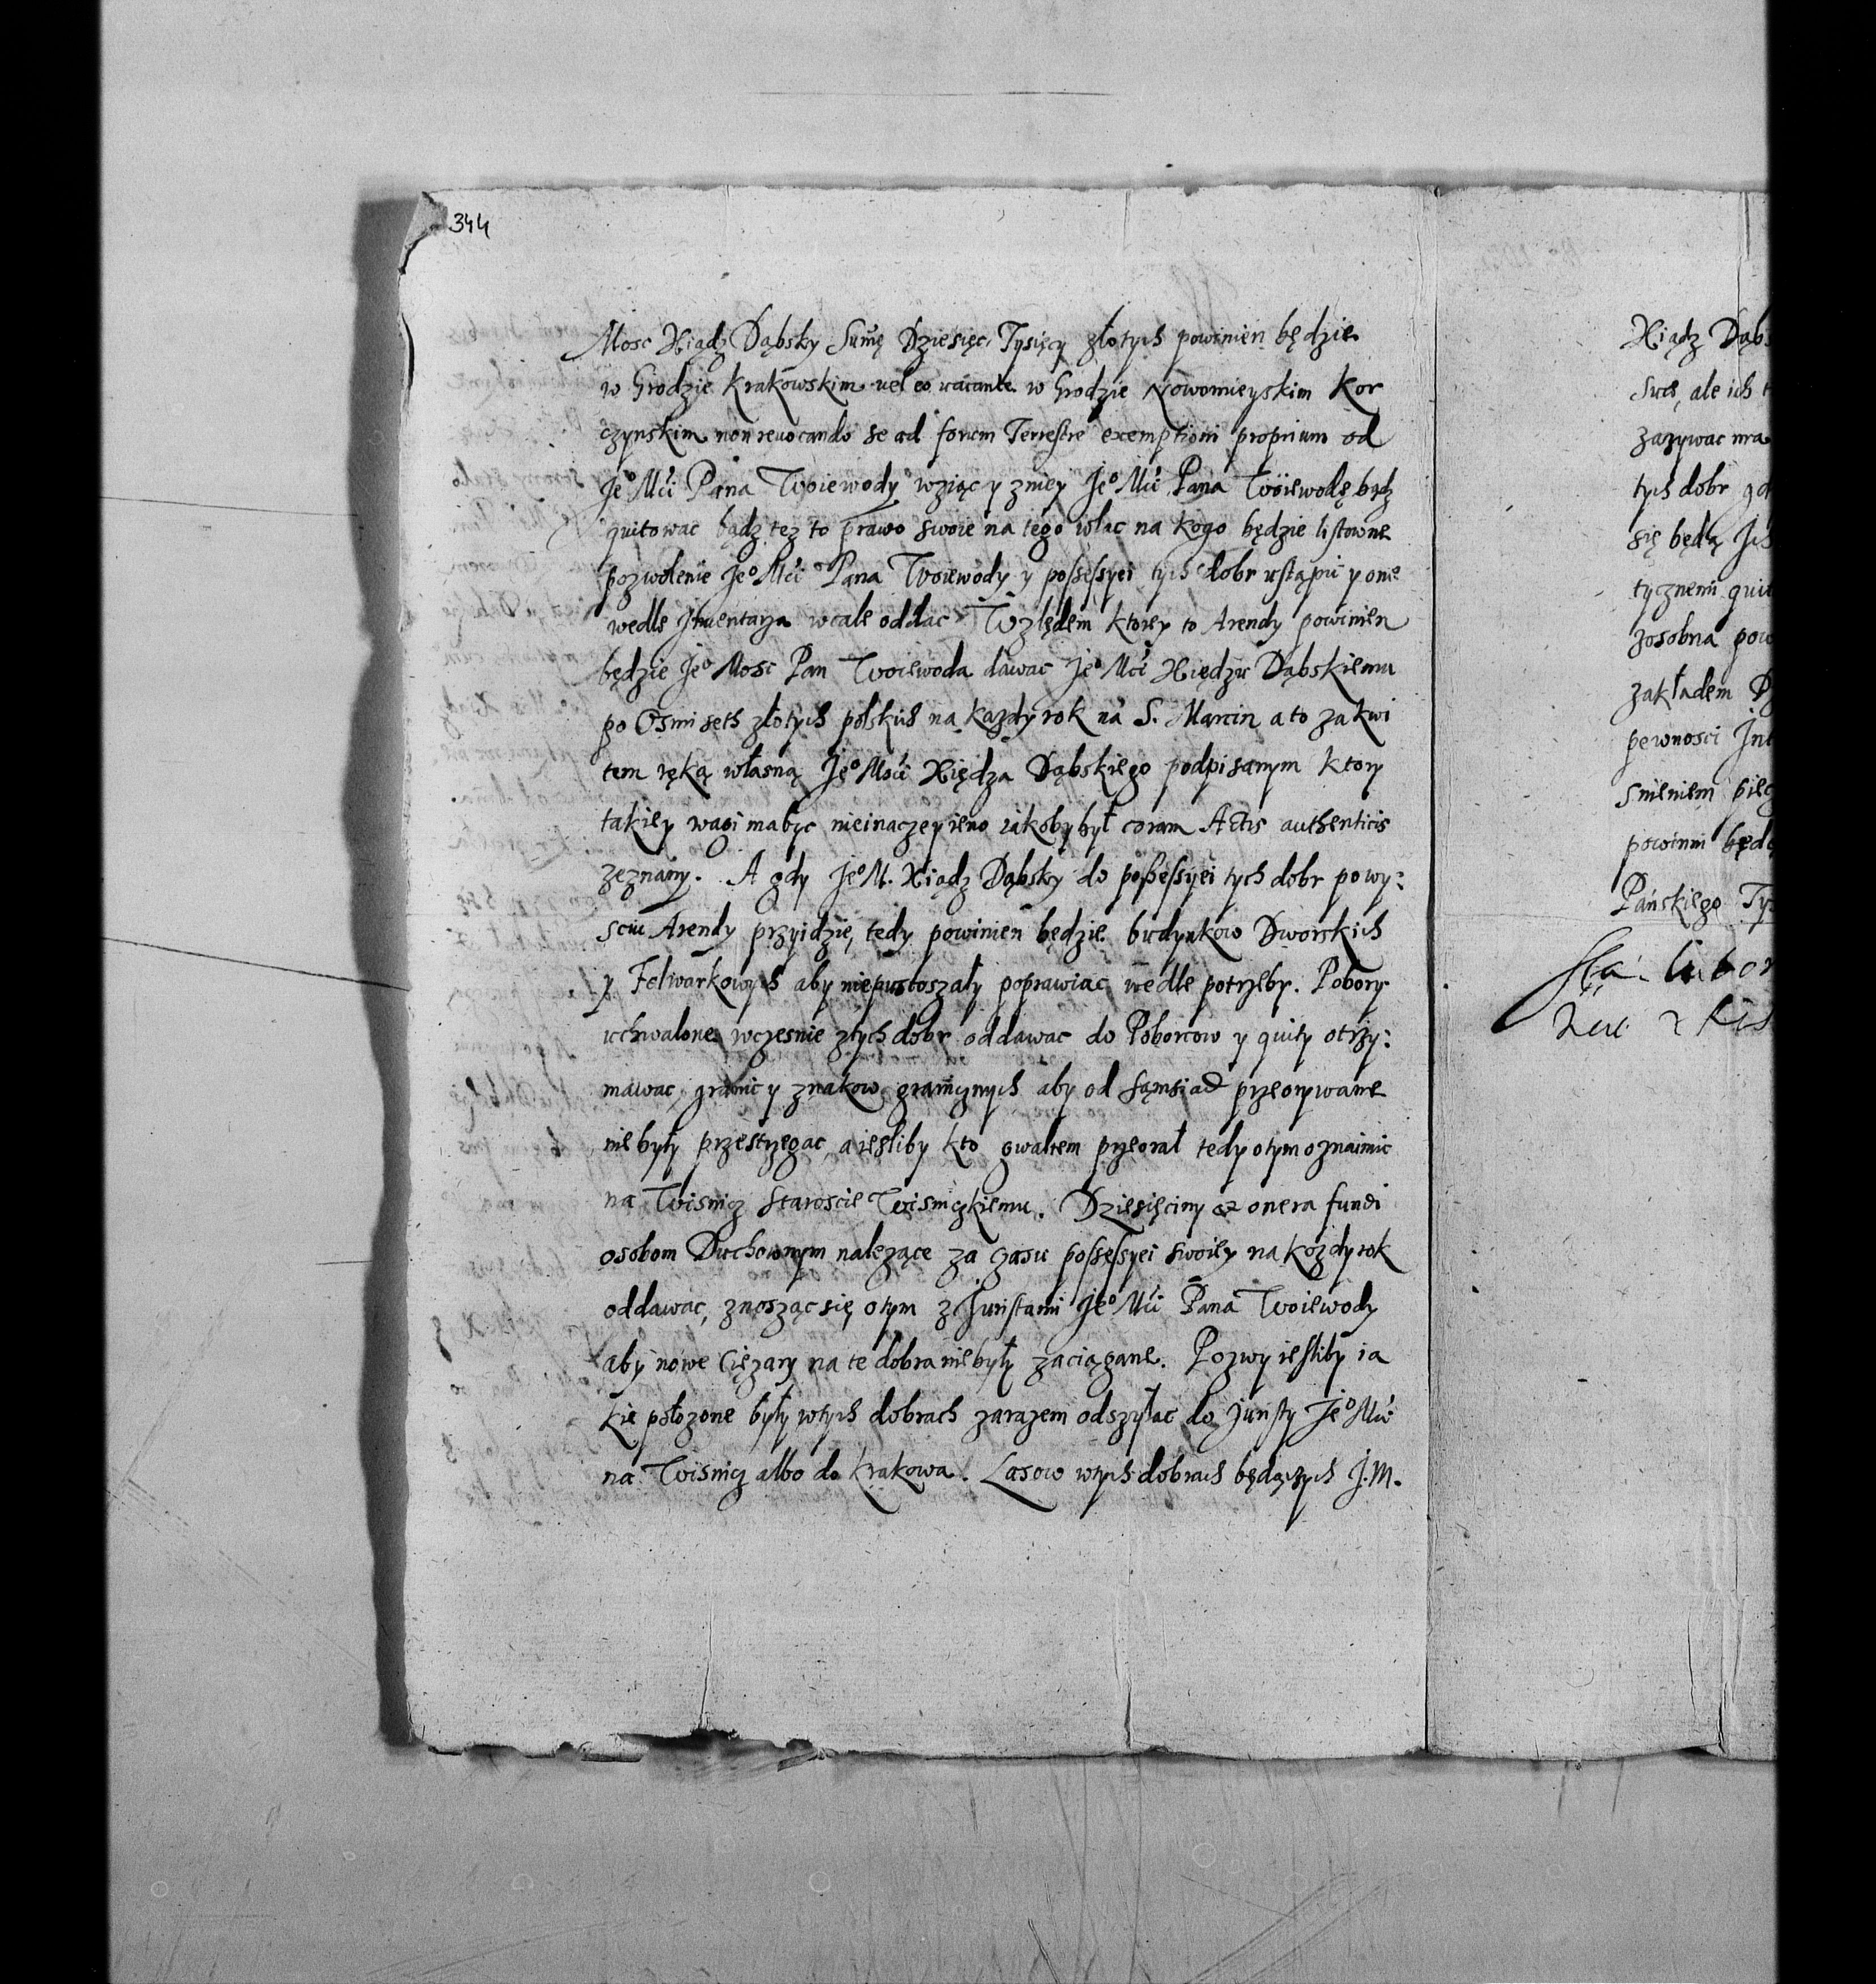 344
Mosc Xiądz Dąbsky Sumę Dziesięc Tysięcy złotych powinien będzie
w Grodzie Krakowskim vel eo vacante w Grodzie Nowomieyskim Kor
czynskim non revocando se ad forum Terrestre exemptioni proprium od
Jeº Mći Pana Woiewody wziąc y zniey Jeº Mći Pana Woiewodę bądz
quitowac bądz tez to prawo swoie na tego wlac na kogo będzie listowne
pozwolenie Jeº Mći Pana Woiewody y possessyei tych dobr ustąpić y one
wedle Inwentarza wcale oddac Względem ktorey to Arendy powinien
będzie Jeº Mosc Pan Woiewoda dawac Jeº Mći Xiędzu Dąbskiemu
po Osmi seth złotych polskich na kazdy rok na S. Marcin a to za kwi
tem ręką własną Jeº Mości Xiędza Dąbskiego podpisanym ktory
takiey wagi ma byc nieinaczey ieno iakoby był coram Actis authenticis
zeznany. A gdy Jeº M. Xiądz Dąbsky do possessyei tych dobr po wy:
sciu Arendy przyidzie, tedy powinien będzie budynkow Dworskich
y Folwarkowych aby niepustoszały poprawiac wedle potrzeby. Pobory
uchwalone wczesnie ztych dobr oddawac do Poborcow y quity otrzy:
mawac, granic y znakow granicznych aby od sąmsiad przeorywane
nie były przestrzegac, a iesliby kto gwałtem przeorał tedy otym oznaimic
na Wisnicz Staroscie Wisnickiemu. Dziesięciny et onera fundi
osobom Duchownym nalezące za czasu possessyei swoiey na kozdy rok
oddawac, znosząc się otym z Juristami Jeº Mći Pana Woiewody
aby nowe Ciężary na te dobra nie były zaciągane. Pozwy iesliby ia
kie położone były wtych dobrach zarazem odszyłac do Juristy Jeº Mći
na Wisnicz albo do Krakowa. Lasow wtych dobrach będących J.M.
Xiądz Dąbs
ale ich
zazywac ma
tych dobr
się będą
tycznemi
zosobna pow
zakładem
pewnosci
powinni będą
Pańskiego